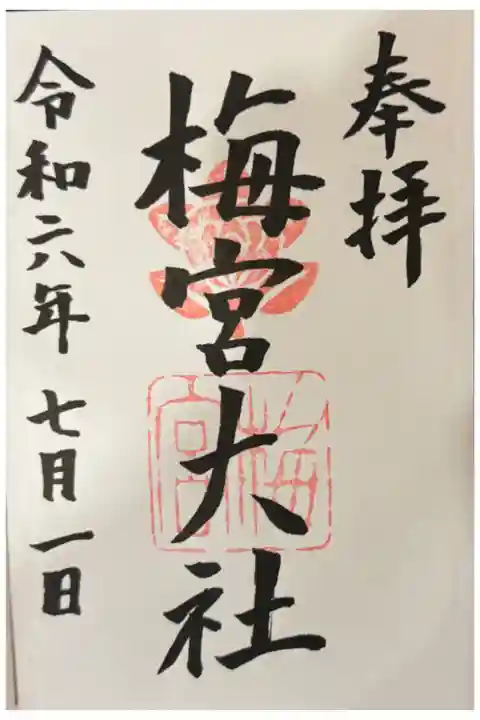 奉拝
梅宮大社
梅宮
令和六年七月一日